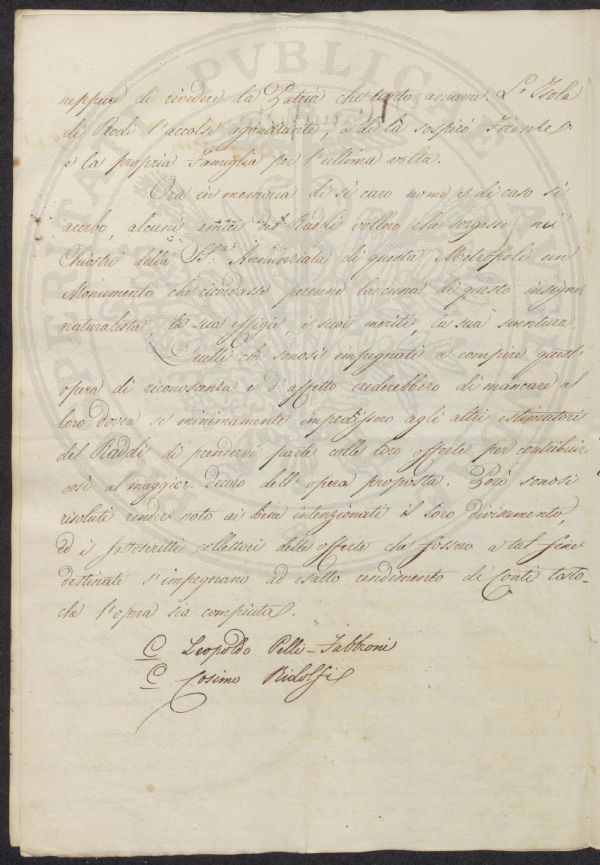 neppure di rivedere la Patria che tanto amava. L'Isola
di Rodi l'accolse agonizzante, e di là sospirò Firenze
e la propria Famiglia per l'ultima volta.
Ora in memoria di sì caro nome, e di caso sì
acerbo, alcuni amici del Raddi vollero che sorgesse nei
Chiostri della SS.ª Annunziata di questa Metropoli un
Monumento che ricordasse perenne la cuna di questo insigne
naturalista, la sua effigie, i suoi meriti, la sua sventura.
Quelli che sonosi impegnati a compire quest'
opera di riconoscenza e d'affetto crederebbero di mancare al
loro dovere se minimamente impedissero agli altri estimatori
del Raddi di prendervi parte colle loro offerte per contribuire
così al maggior decoro dell'opera proposta. Però sonosi
risoluti render noto ai bene intenzionati il loro divisamento,
ed i sottoscritti collettori delle offerte che fossero a tal fine
destinate s'impegnano ad esatto rendimento di Conti tosto-
che l'opera sia compiuta.
C Leopoldo Pelli-Fabbroni
C Cosimo Ridolfi